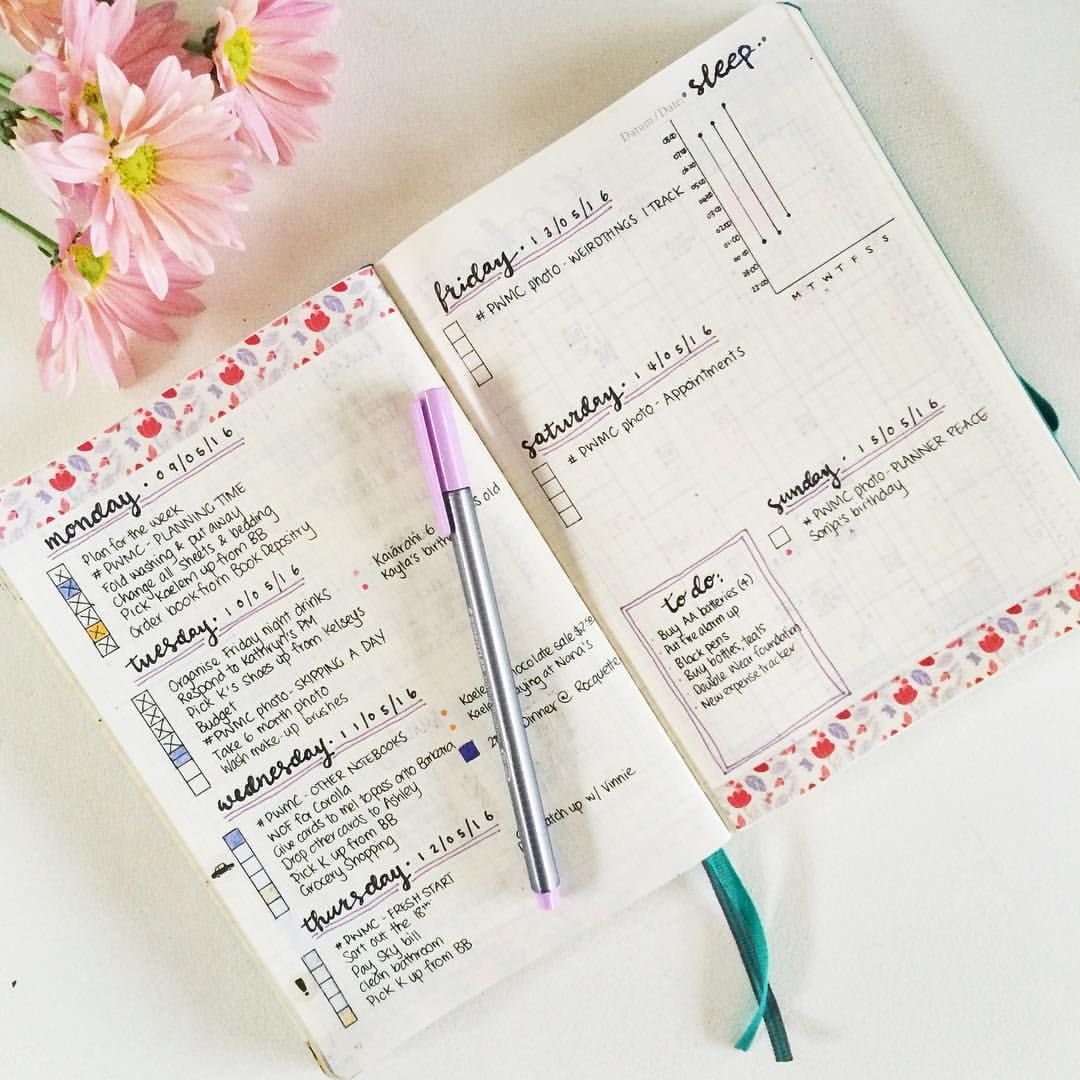 monday. 09/05/16
Plan for the week
# PWMC - PLANNING TIME
Fold washing & put away
Change all sheets & bedding
Pick Kaelem up from BB
Order book from Book Depositry
tuesday. 10/05/16
Organise Friday night drinks
Respond to Kathryn's PM
Pick K's shoes up from Kelseys
Budget
#PWMC photo - SKIPPING A DAY
Take 6 month photo
Wash make-up brushes
Kaiarahi 6 old
Kayla's
wednesday. 11/05/16
# PWMC - OTHER NOTEBOOKS
WOF for Corolla
Give cards to mel to pass onto Barbara
Drop other cards to Ashley
Pick K up from BB
Grocery Shopping
chocolate sale
at Nana's
Dinner @ Rocquette
thursday. 12/05/16
#PWMC - FRESH START
Sort out the 18th
Pay sky bill
Clean bathroom
Pick K up from BB
catch up w/ Vinnie
!
friday. 13/05/16
# PWMC photo - WEIRD THINGS I TRACK
saturday. 14/05/16
# PWMC photo - Appointments
sunday. 15/05/16
# PWMC photo - PLANNER PEACE
birthday
to do:
· Buy AA batteries (4)
· Put fire alarm up
· Black pens
· Buy bottles, teats
· Double Wear foundation
· New expense tracker
Datum / Date:
· sleep..
08:00
07:00
05:00
03:00
02:00
01:00
22:00
M T W T F S S